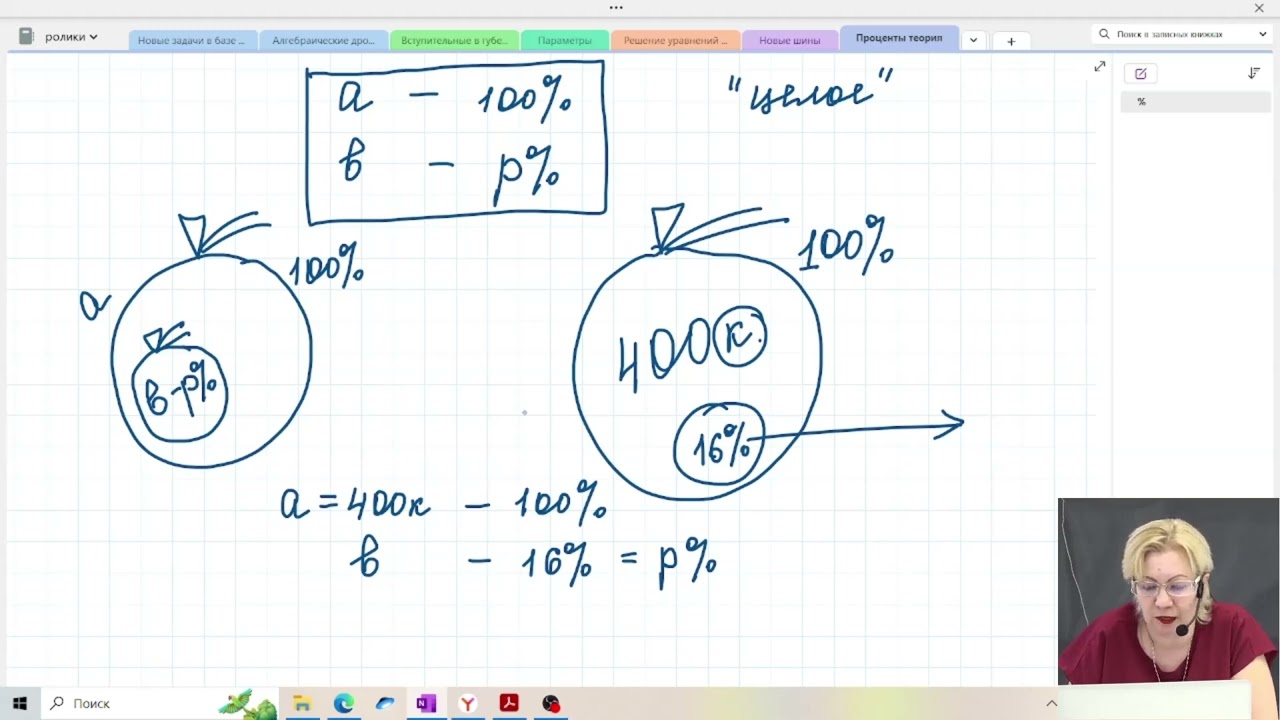 ...
ролики
Новые задачи в базе ...
Алгебраические дро...
Вступительные в губе...
Параметры
Решение уравнений ...
Новые шины
Проценты теория
+
Поиск в записных книжках
%
a – 100%
в – p%
"целое"
100%
a
в-p%
100%
400к.
16%
a = 400к – 100%
в – 16% = p%
Поиск